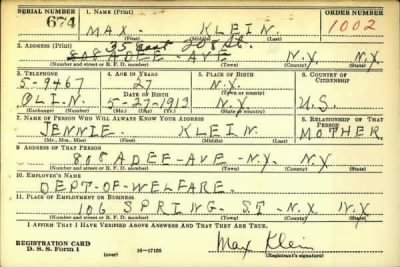 SERIAL NUMBER 1. NAME (Print) ORDER NUMBER
674 MAX - KLEIN. 1002
2. ADDRESS (Print) 35 East 208 St.
808 ADEE - AVE N.Y. N.Y.
(Number and street or R. F. D. number) (Town) (County) (State)
3. TELEPHONE 4. AGE IN YEARS 5. PLACE OF BIRTH 6. COUNTRY OF CITIZENSHIP
5-9467 27 N.Y.
OLIN. DATE OF BIRTH
5-27-1913 N.Y. U.S.
(Exchange) (Number) (Mo.) (Day) (Yr.) (State or country)
7. NAME OF PERSON WHO WILL ALWAYS KNOW YOUR ADDRESS 8. RELATIONSHIP OF THAT PERSON
JENNIE. KLEIN. MOTHER
(Mr., Mrs., Miss) (First) (Middle) (Last)
9. ADDRESS OF THAT PERSON
808 ADEE-AVE-N.Y. N.Y.
(Number and street or R. F. D. number) (Town) (County) (State)
10. EMPLOYER'S NAME
DEPT-OF-WELFARE.
11. PLACE OF EMPLOYMENT OR BUSINESS
106 SPRING-ST-N.Y N.Y.
(Number and street or R. F. D. number) (Town) (County) (State)
I AFFIRM THAT I HAVE VERIFIED ABOVE ANSWERS AND THAT THEY ARE TRUE.
REGISTRATION CARD
D. S. S. Form 1 (over) 16-17105 Max Klein
(Registrant's signature)